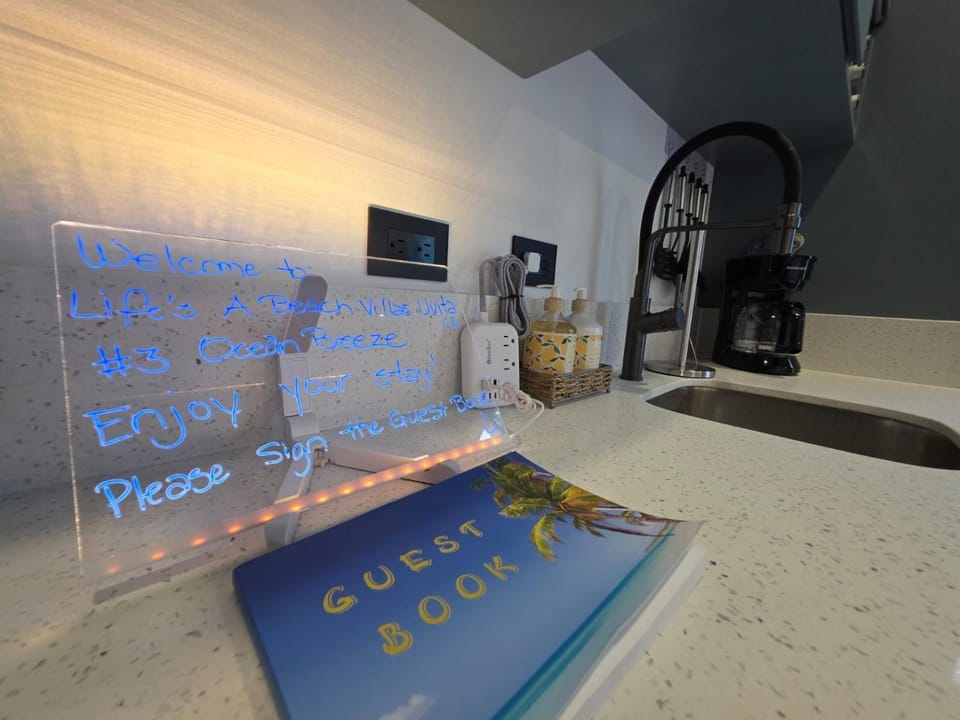 Welcome to
Life's A Beach Villas Uvita
#3 Ocean Breeze
Enjoy your stay!
Please Sign the Guest Book
GUEST
BOOK